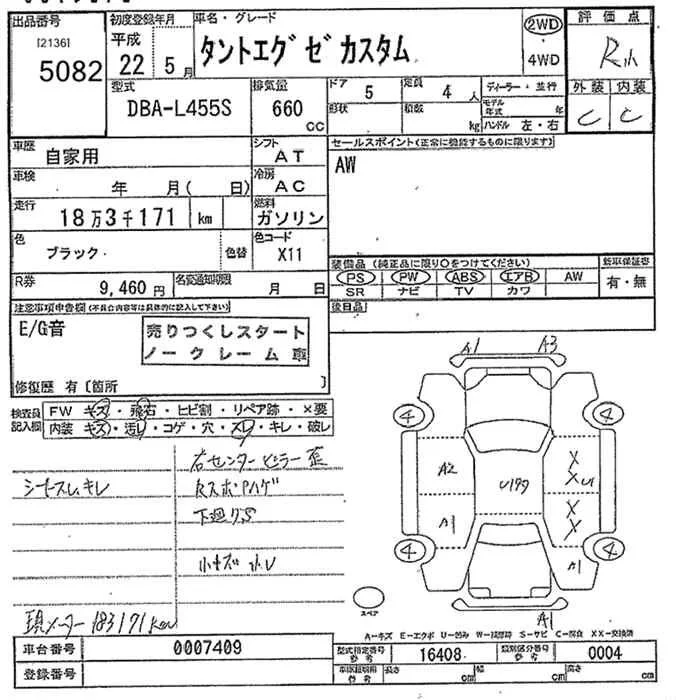 出品番号 初度登録年月 車名・グレード 2WD 評価点
[2136] 平成 タントエグゼカスタム
5082 22 5月 4WD R小
型式 排気量 ドア 5 定員 4人 ディーラー・並行 外装 内装
DBA-L455S 660 cc 形状 積数 kg モデル年式 年 C C
ハンドル 左・右
車歴 自家用 シフト AT セールスポイント(正常に機能するものに限ります)
車検 年 月( 日) 冷房 AC AW
走行 18万3千171 km 燃料 ガソリン
色 ブラック 色替 色コード X11
装備品(純正品に限り○をつけてください) 新車保証書
R券 9,460円 名変通知期限 月 日 PS PW ABS エアB AW 有・無
SR ナビ TV カワ
注意事項申告欄(不具合内容等は具体的に記入して下さい) 後日品
E/G音 売りつくしスタート
ノークレーム車
修復歴 有〔箇所 〕
A1 A3
検査員 FW キズ・飛石・ヒビ割・リペア跡・×要
記入欄 内装 キズ・汚レ・コゲ・穴・スレ・キレ・破レ
4 4
右センターピラー歪
A2 U199 X XU
シートスレ キレ
下廻りS
A1 X X
4 4
小キズ 小U A1
スペア
A1
現メーター183171km
A-キズ E-エクボ U-凹み W-補修跡 S-サビ C-腐食 XX-交換済
車台番号 0007409 型式指定番号 参考 16408 類別区分番号 参考 0004
登録番号 車体証明用 参考 長さ cm 幅 cm 高さ cm